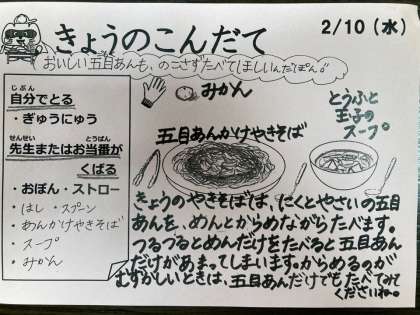 きょうのこんだて
2/10（水）
おいしい五目あんも、のこさずたべてほしいんだぽん♪
自分でとる
じぶん
・ぎゅうにゅう
先生またはお当番が
せんせい
とうばん
くばる
・おぼん・ストロー
・はし・スプーン
・あんかけやきそば
・スープ
・みかん
みかん
とうふと
玉子の
スープ
五目あんかけやきそば
きょうのやきそばは、にくとやさいの五目
あんを、めんとからめながらたべます。
つるつるとめんだけをたべると五目あん
だけがあまってしまいます。からめるのが
むずかしいときは、五目あんだけでもたべてみて
くださいね。